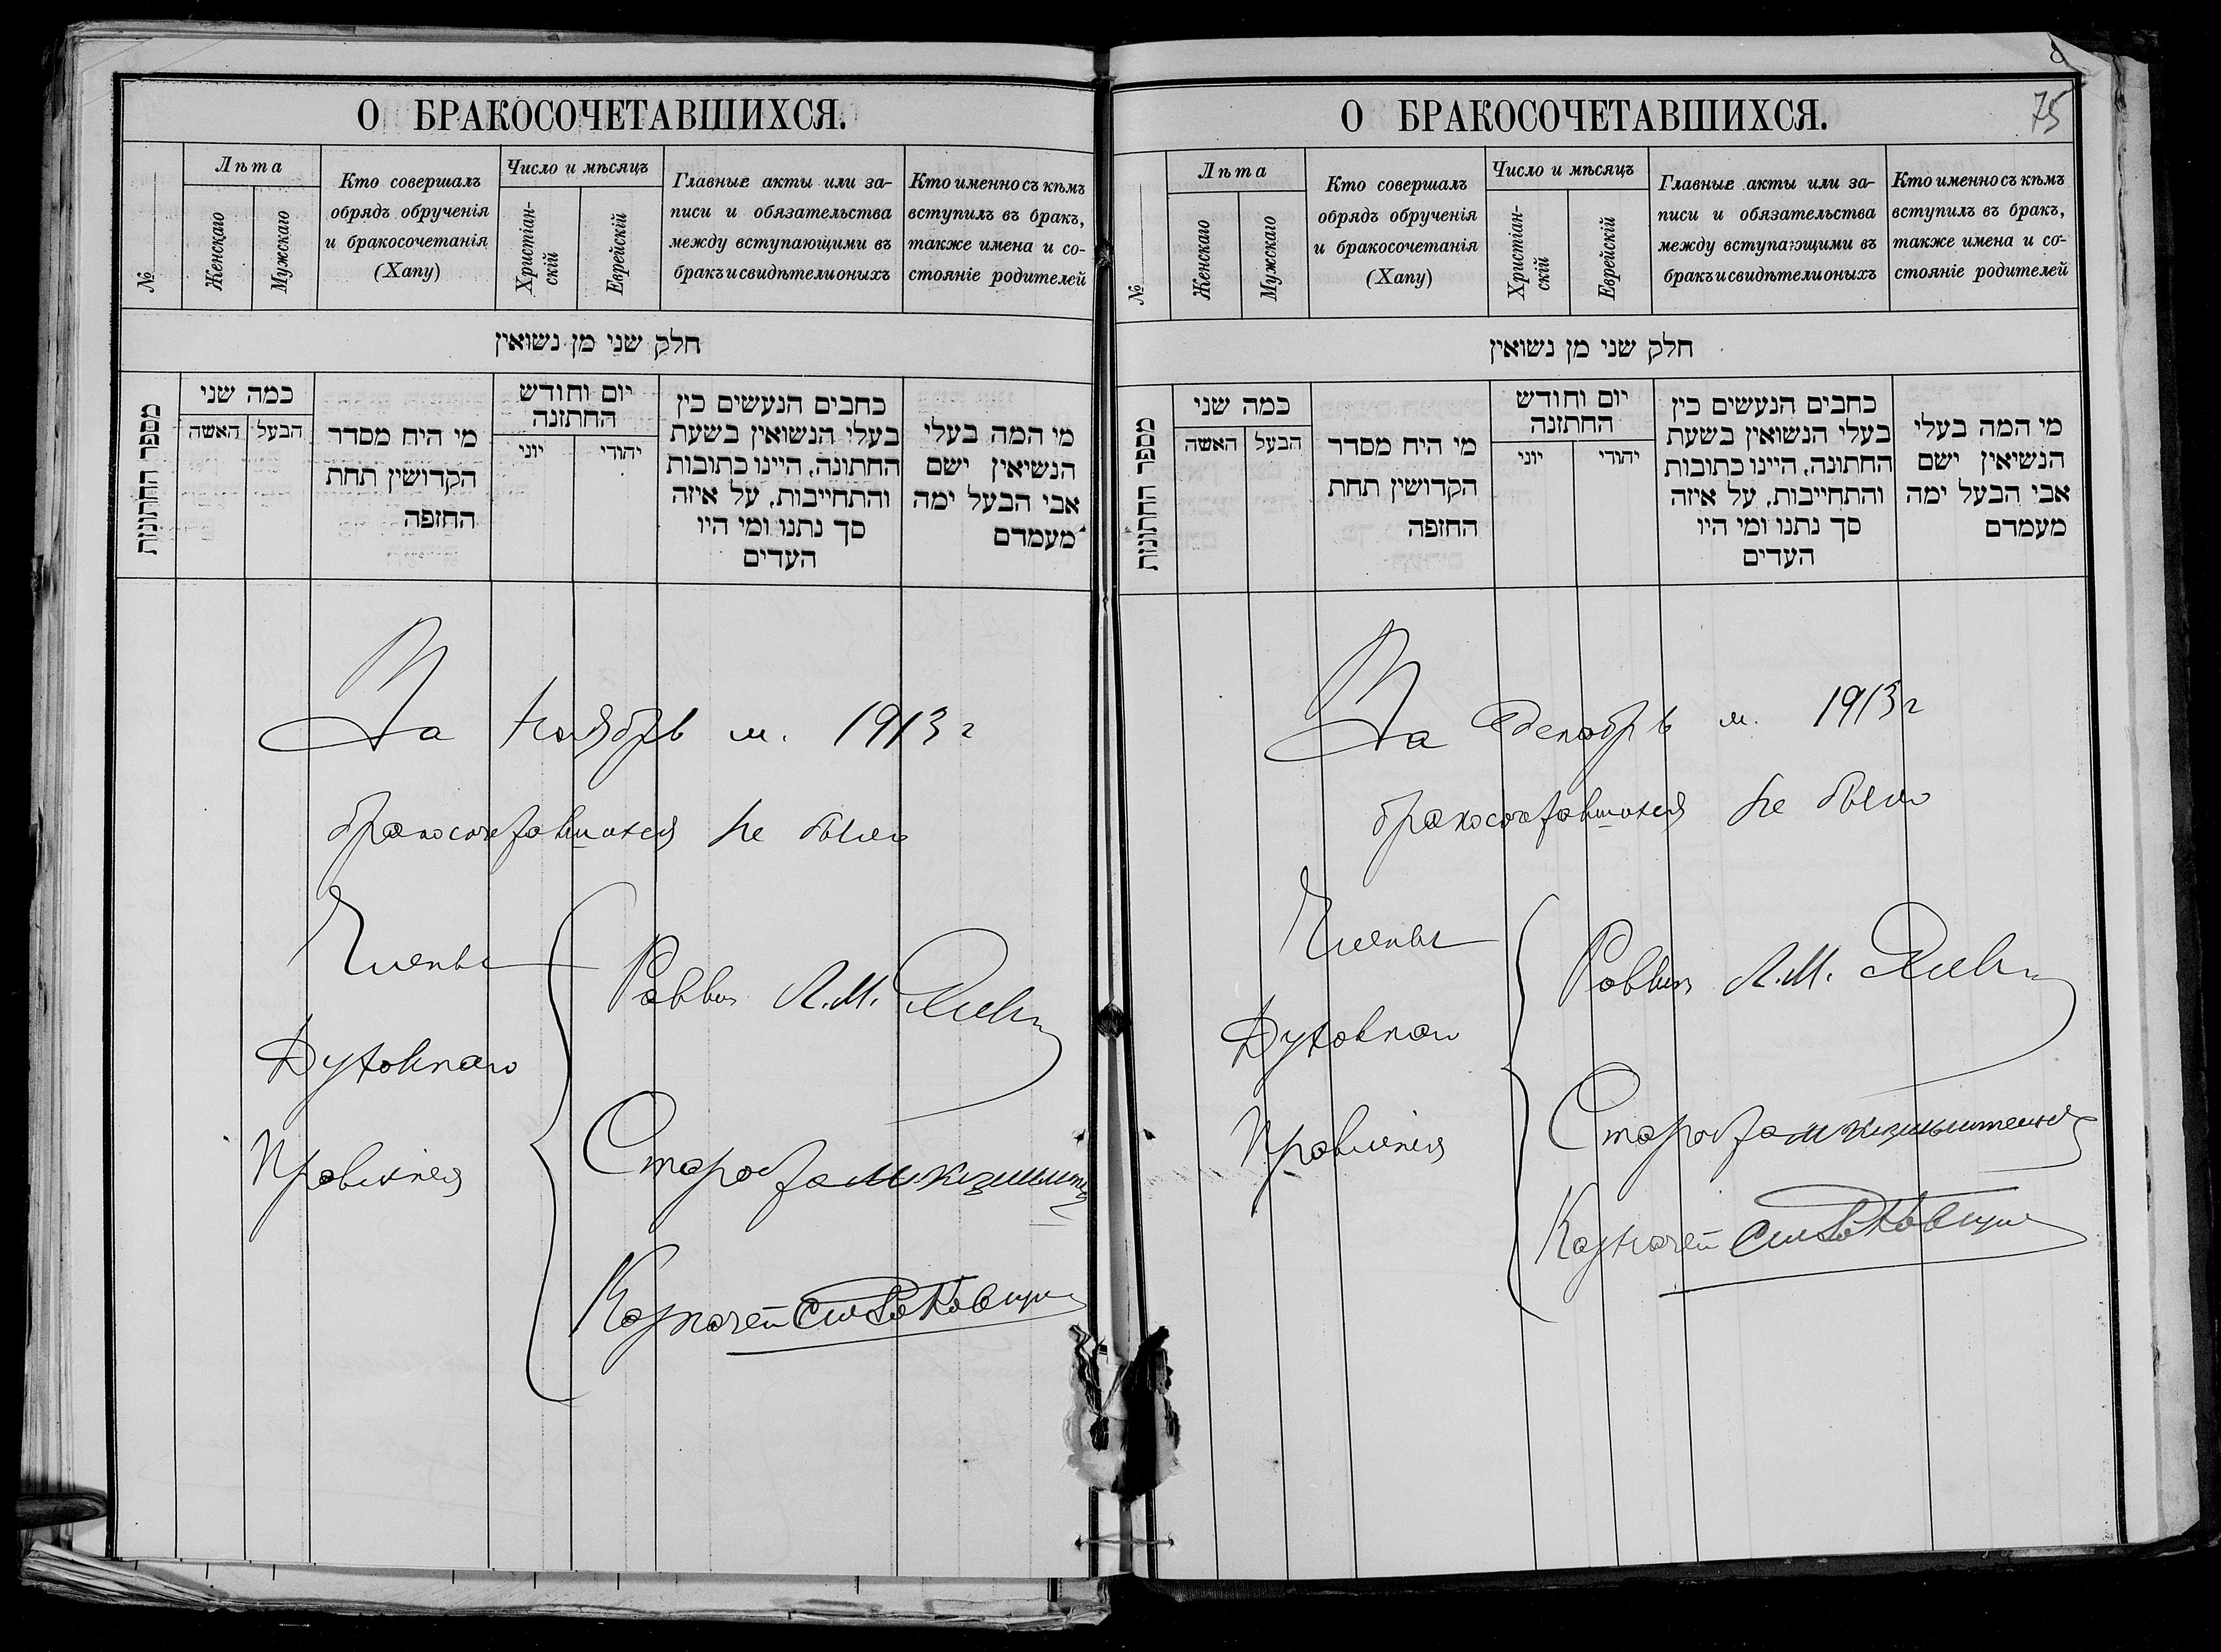 О БРАКОСОЧЕТАВШИХСЯ.
№
Лѣта
Женскаго
Мужскаго
Кто совершалъ
обрядъ обрученія
и бракосочетанія
(Хапу)
Число и мѣсяцъ
Христіан-
скій
Еврейскій
Главные акты или за-
писи и обязательства
между вступающими въ
бракъ и свидѣтели оныхъ
Кто именно съ кѣмъ
вступилъ въ бракъ,
также имена и со-
стояніе родителей
חלק שני מן נשואין
מספר החתונות
כמה שני
האשה
הבעל
מי היח מסדר
הקדושין תחת
החופה
יום וחודש
החתונה
יוני
יהודי
כחבים הנעשים כין
בעלי הנשואין בשעת
החתונה, היינו כתובות
והתחייבות, על איזה
סך נתנו ומי היו
העדים
מי המה בעלי
הנשיאין ישם
אבי הבעל ימה
מעמדם
За Ноябрь м. 1913 г
бракосочетавшихся не было
Члены
Духовнаго
Правленія
Раввин Л.М.
Староста М.
Казначей
О БРАКОСОЧЕТАВШИХСЯ.
75
№
Лѣта
Женскаго
Мужскаго
Кто совершалъ
обрядъ обрученія
и бракосочетанія
(Хапу)
Число и мѣсяцъ
Христіан-
скій
Еврейскій
Главные акты или за-
писи и обязательства
между вступающими въ
бракъ и свидѣтели оныхъ
Кто именно съ кѣмъ
вступилъ въ бракъ,
также имена и со-
стояніе родителей
חלק שני מן נשואין
מספר החתונות
כמה שני
האשה
הבעל
מי היח מסדר
הקדושין תחת
החופה
יום וחודש
החתונה
יוני
יהודי
כחבים הנעשים כין
בעלי הנשואין בשעת
החתונה, היינו כתובות
והתחייבות, על איזה
סך נתנו ומי היו
העדים
מי המה בעלי
הנשיאין ישם
אבי הבעל ימה
מעמדם
За Декабрь м. 1913 г
бракосочетавшихся не было
Члены
Духовнаго
Правленія
Раввин Л.М.
Староста М.
Казначей